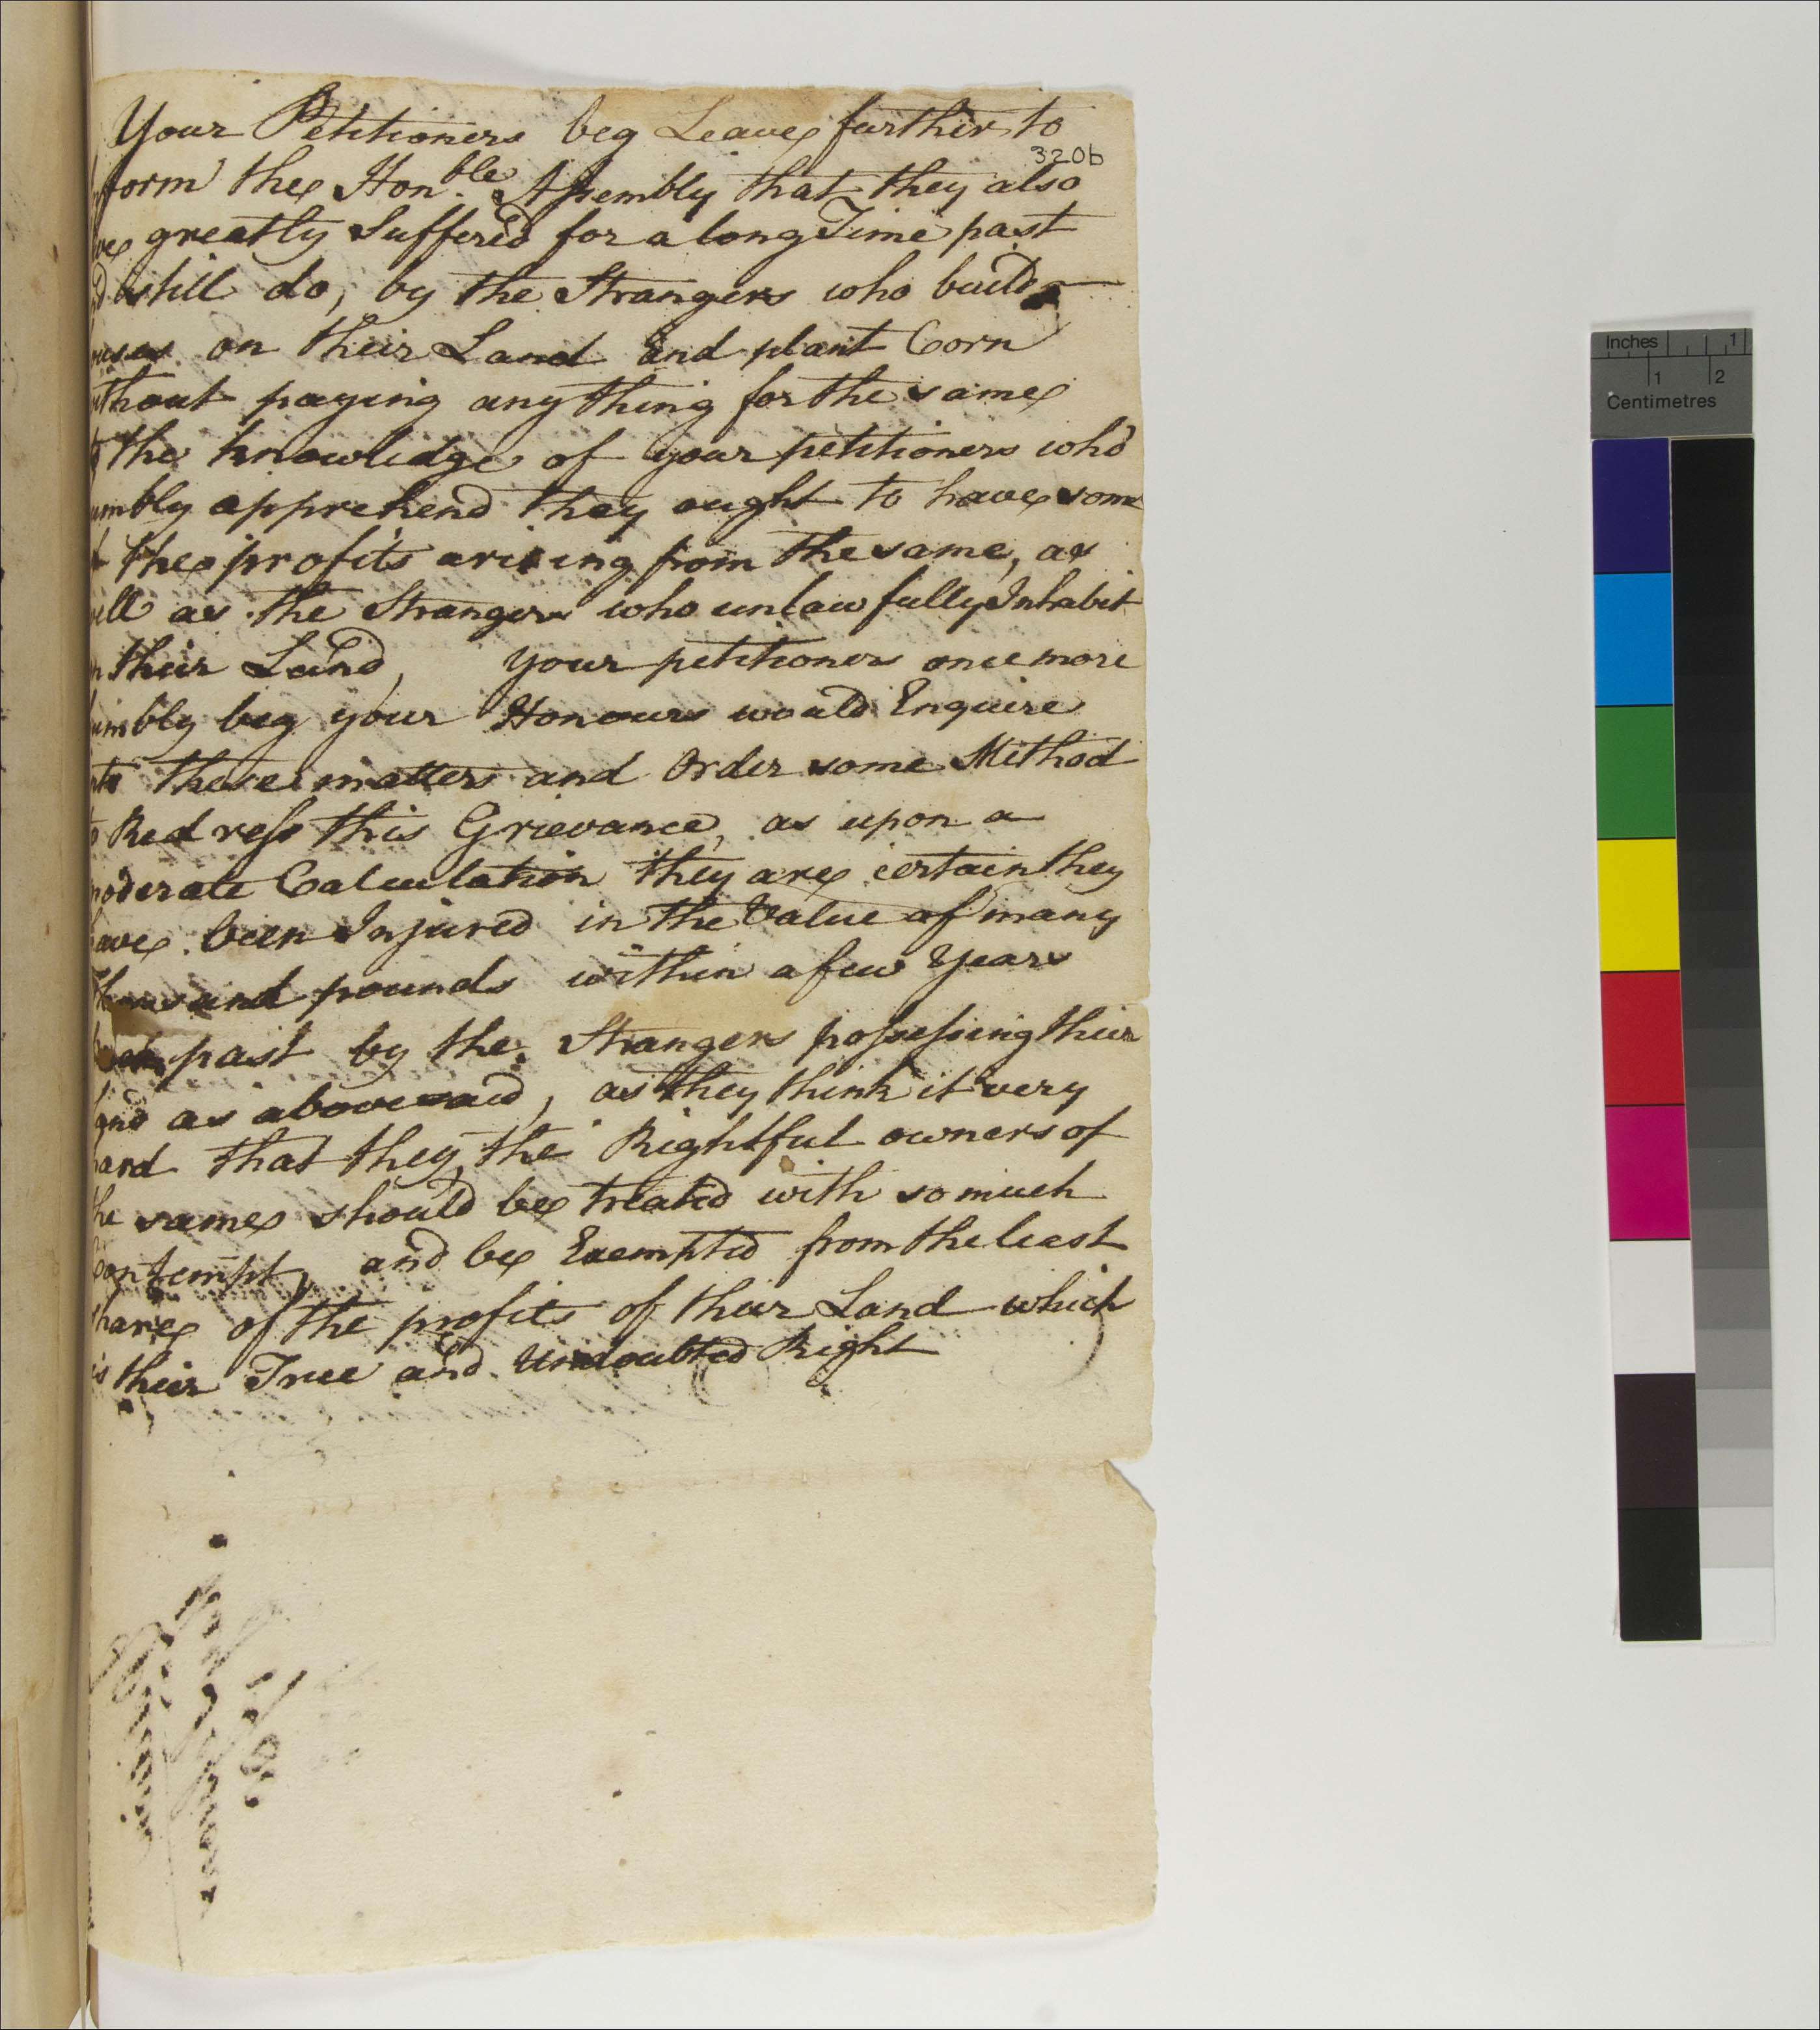 Your Petitioners beg Leave further to
320b
form the Hon.ble Assembly that they also
ve greatly Suffer'd for a long Time past
d still do, by the Strangers who build
uses on their Land And plant Corn
ithout paying any thing for the same
the knowledge of your petitioners who
umbly apprehend they ought to have some
f the profits arising from the same, as
well as the Strangers who unlawfully Inhabit
n their Land, your petitioners once more
umbly beg your Honours would Enquire
nto these matters and Order some Method
to Redress this Grievance, as upon a
moderate Calculation they are certain they
have been Injured in the Value of many
Thousand pounds within a few Years
past by the Strangers possessing their
land as abovesaid, as they think it very
hard that they, the Rightful owners of
the same should be treated with so much
Contempt, and be Exempted from the least
share of the profits of their Land which
is their True and Undoubted Right
Inches 1
1 2
Centimetres